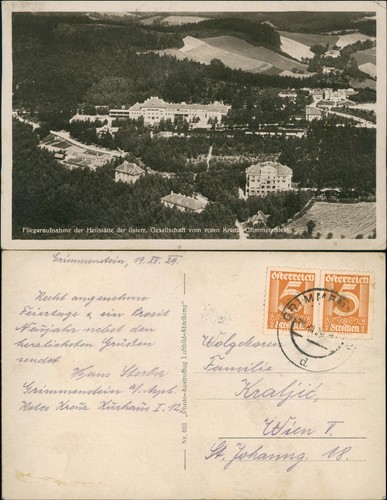 Fliegeraufnahme der Heilstätte der österr. Gesellschaft vom roten Kreuz, Grimmenstein
Grimmenstein, 19. XII. 29.
Recht angenehme
Feiertage & ein Prosit
Neujahr nebst den
herzlichsten Grüßen
sendet
Hans
Grimmenstein a/Apb.
Rotes Kreuz Kurhaus I. 12
Nr. 635 "Photo-Austroflug Luftbild-Abteilung"
österreich österreich
5 5
Groschen Groschen
GRIMMEN
d
Wolgeboren
Familie
Kraljić,
Wien V.
St. Johanng. 18.